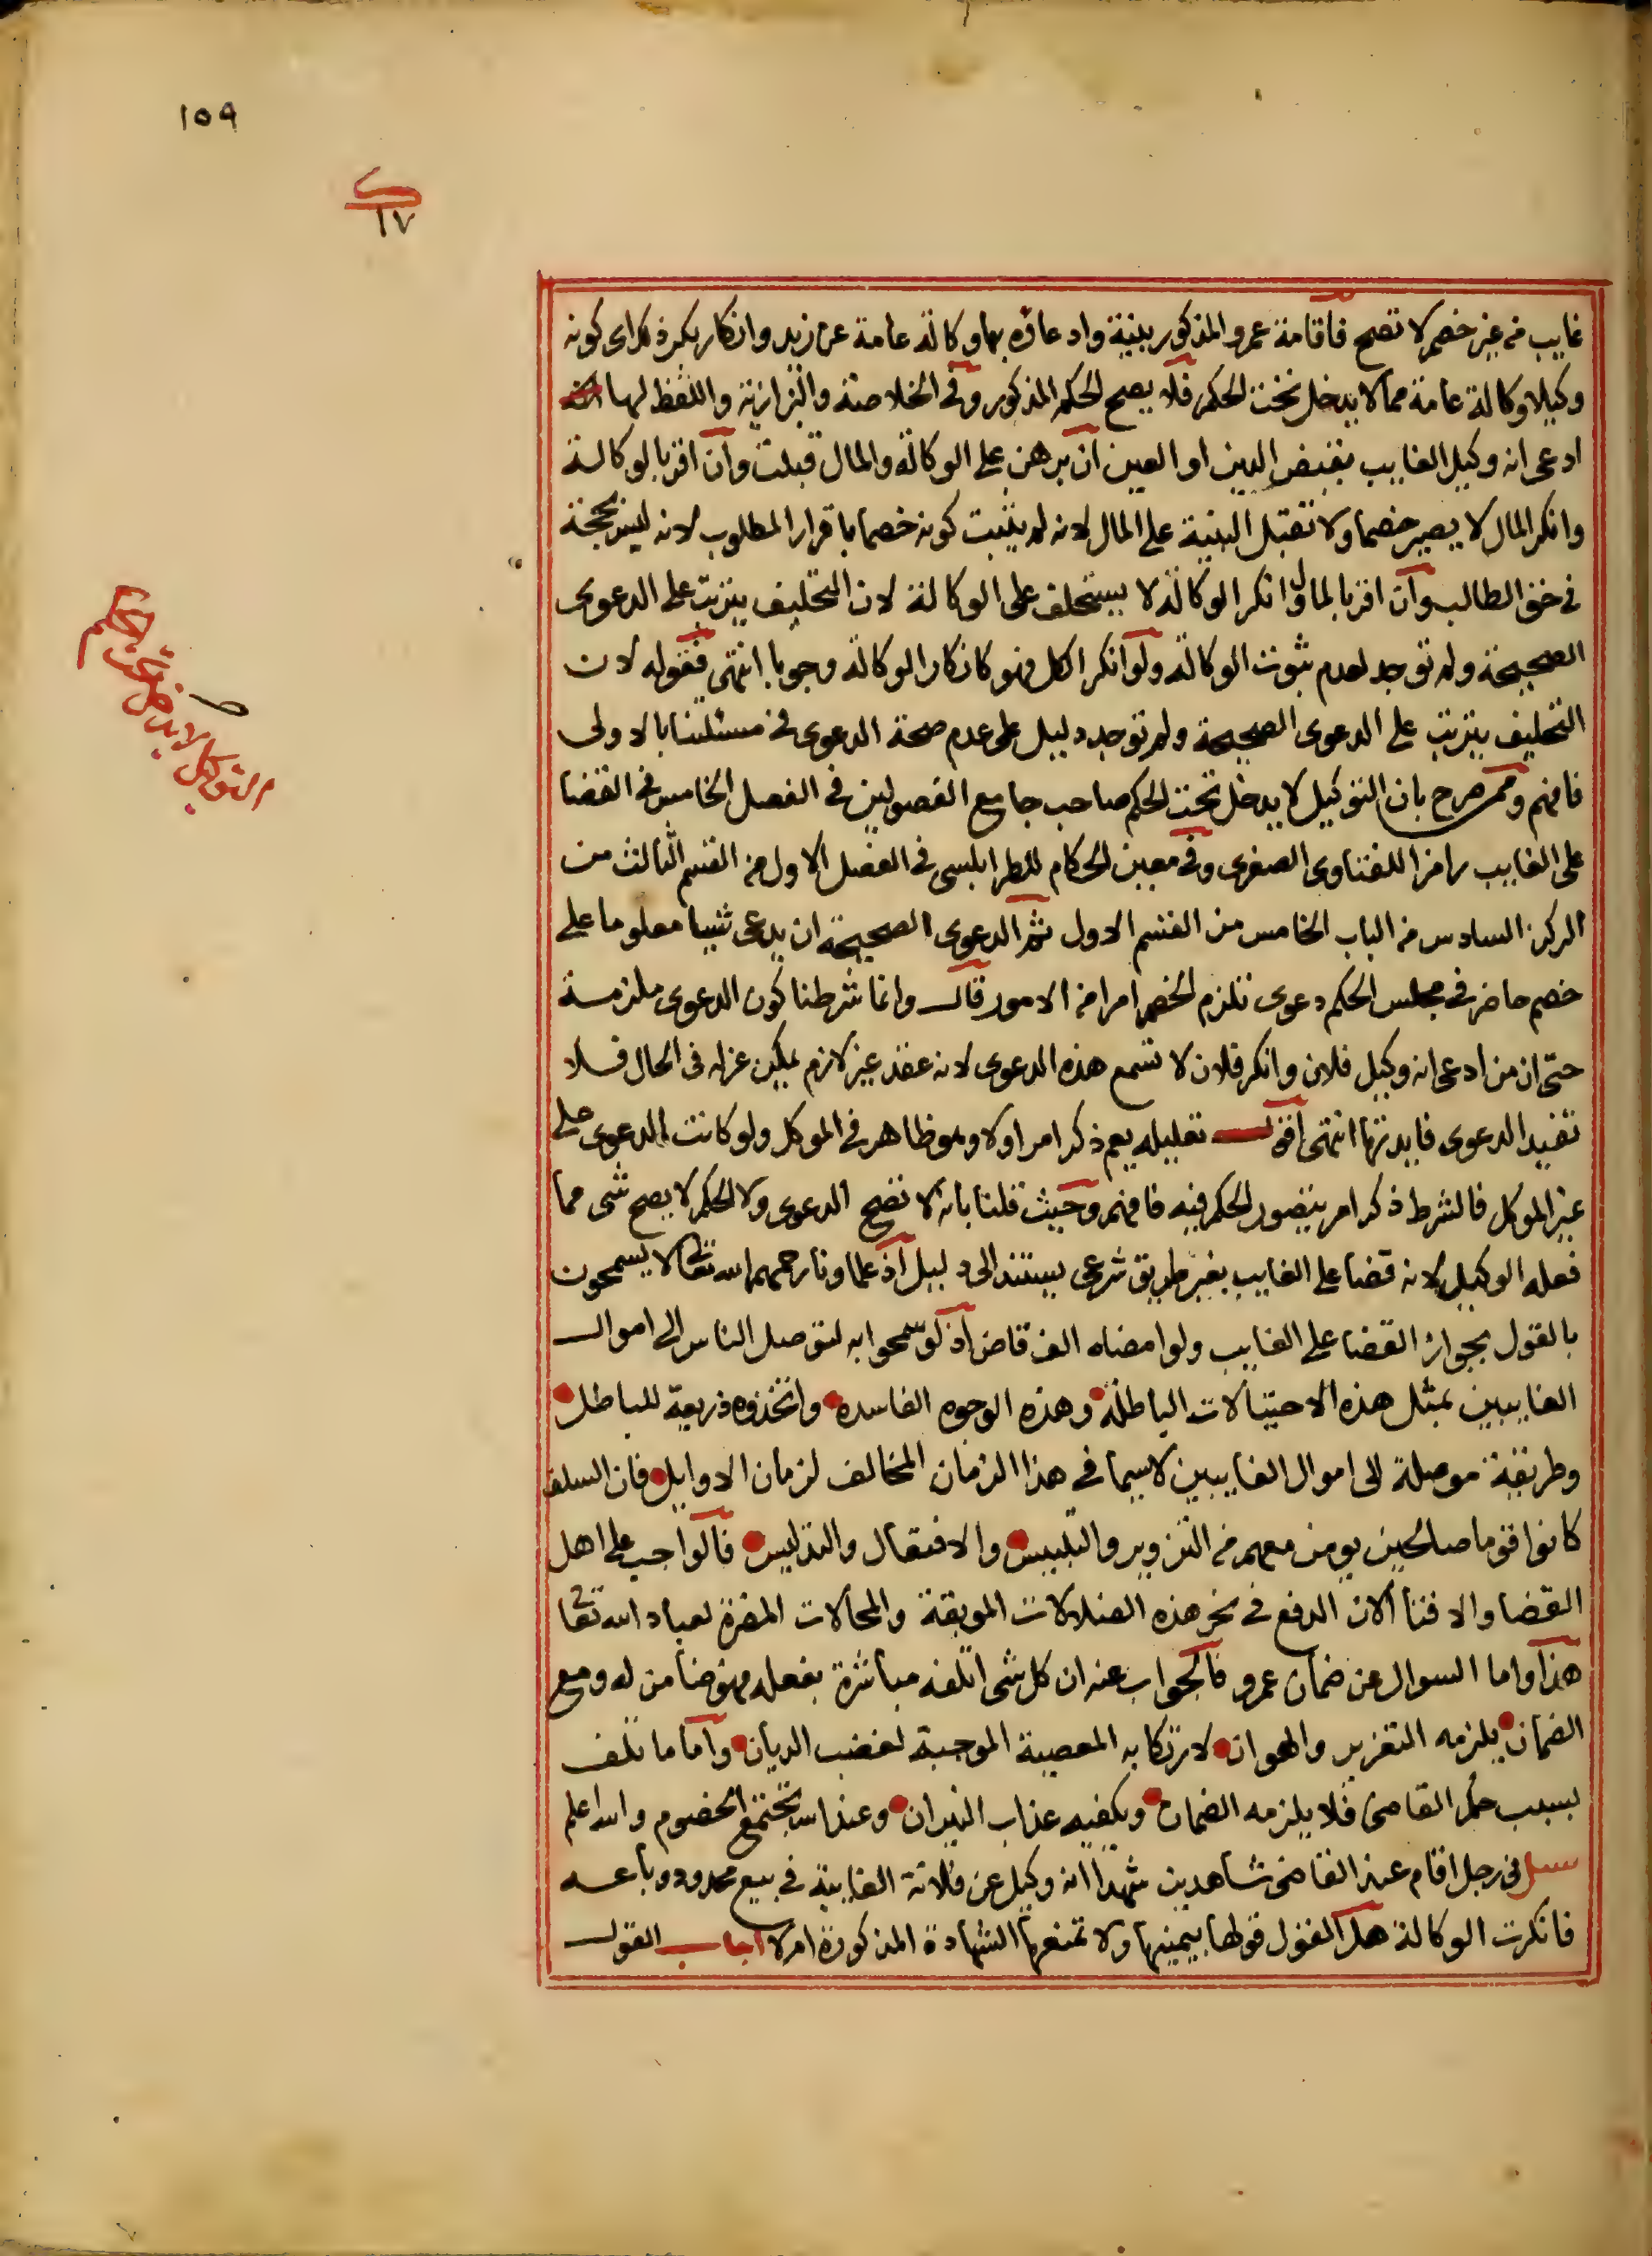 ١٥٩
ك
١٧
غايب من غير خصم لا تصح فاقامة عمرو المذكور بينة وادعاؤه بها وكالة عامة عن زيد وانكار بكر ذلك اى كونه
وكيلا وكالة عامة مما لا يدخل تحت الحكم فلا يصح الحكم المذكور وفى الخلاصة والبزازية واللفظ لها
ادعى انه وكيل الغايب بقبض الدين او العين ان برهن على الوكالة والمال قبلت وان اقر بالوكالة
وانكر المال لا يصير خصما ولا تقبل البينة على المال لانه لم يثبت كونه خصما باقرار المطلوب لانه ليس بحجة
فى حق الطالب وان اقر بالمال وانكر الوكالة لا يستحلف على الوكالة لان التحليف يترتب على الدعوى
الصحيحة ولم توجد لعدم ثبوت الوكالة ولو انكر الكل فهو كانكار الوكالة وجوبا انتهى فقوله لان
التحليف يترتب على الدعوى الصحيحة ولم توجد دليل على عدم صحة الدعوى فى مسئلتنا بالاولى
فافهم وممن صرح بان التوكيل لا يدخل تحت الحكم صاحب جامع الفصولين فى الفصل الخامس فى القضا
على الغايب رامزا للفتاوى الصغرى وفى معين الحكام للطرابلسى فى الفصل الاول من القسم الثالث من
الركن السادس من الباب الخامس من القسم الاول ثم الدعوى الصحيحة ان يدعى شيا معلوما على
خصم حاضر فى مجلس الحكم دعوى تلزم الخصم امرا من الامور قال وانما شرطنا كون الدعوى ملزمة
حتى ان من ادعى انه وكيل فلان وانكر فلان لا تسمع هذه الدعوى لانه عقد غير لازم يمكن عزله فى الحال فلا
تفيد الدعوى فايدتها انتهى اقول تعليله يعم ذكر امر اولا وهو ظاهر فى الموكل ولو كانت الدعوى على
غير الموكل فالشرط ذكر امر يتصور الحكم فيه فافهم وحيث قلنا بانه لا تصح الدعوى ولا الحكم لا يصح شى مما
فعله الوكيل لانه قضا على الغايب بغير طريق شرعى يستند الى دليل اذ علماونا رحمهم الله تعالى لا يسمحون
بالقول بجواز القضا على الغايب ولو امضاه الف قاض اذ لو سمحوا به لتوصل الناس الى اموال
الغايبين بمثل هذه الاحتيالات الباطلة وهذه الوجوه الفاسده واتخذوه ذريعة للباطل
وطريقة موصلة الى اموال الغايبين لا سيما فى هذا الزمان المخالف لزمان الاوايل فان السلف
كانوا قوما صالحين يومن معهم من التزوير والتلبيس والافتعال والتدليس فالواجب على اهل
القضا والافتا الان الدفع فى نحر هذه الضلالات الموبقة والمحالات المضرة لعباد الله تعا
هذا واما السوال عن ضمان عمرو فالجواب عنه ان كل شى اتلفه مباشرة بفعله فهو ضامن له ومع
الضمان يلزمه التعزير والهوان لارتكابه المعصية الموجبة لغضب الديان واما ما تلف
بسبب حكم القاضى فلا يلزمه الضمان ويكفيه عذاب النيران وعند الله تجتمع الخصوم والله اعلم
سيل فى رجل اقام عند القاضى شاهدين شهدا انه وكيل عن فلانة الغايبة فى بيع محدود وباعه
فانكرت الوكالة هل القول قولها بيمينها ولا تمنعها الشهادة المذكورة ام لا اجاب القول
التوكيل لا يدخل تحت الحكم